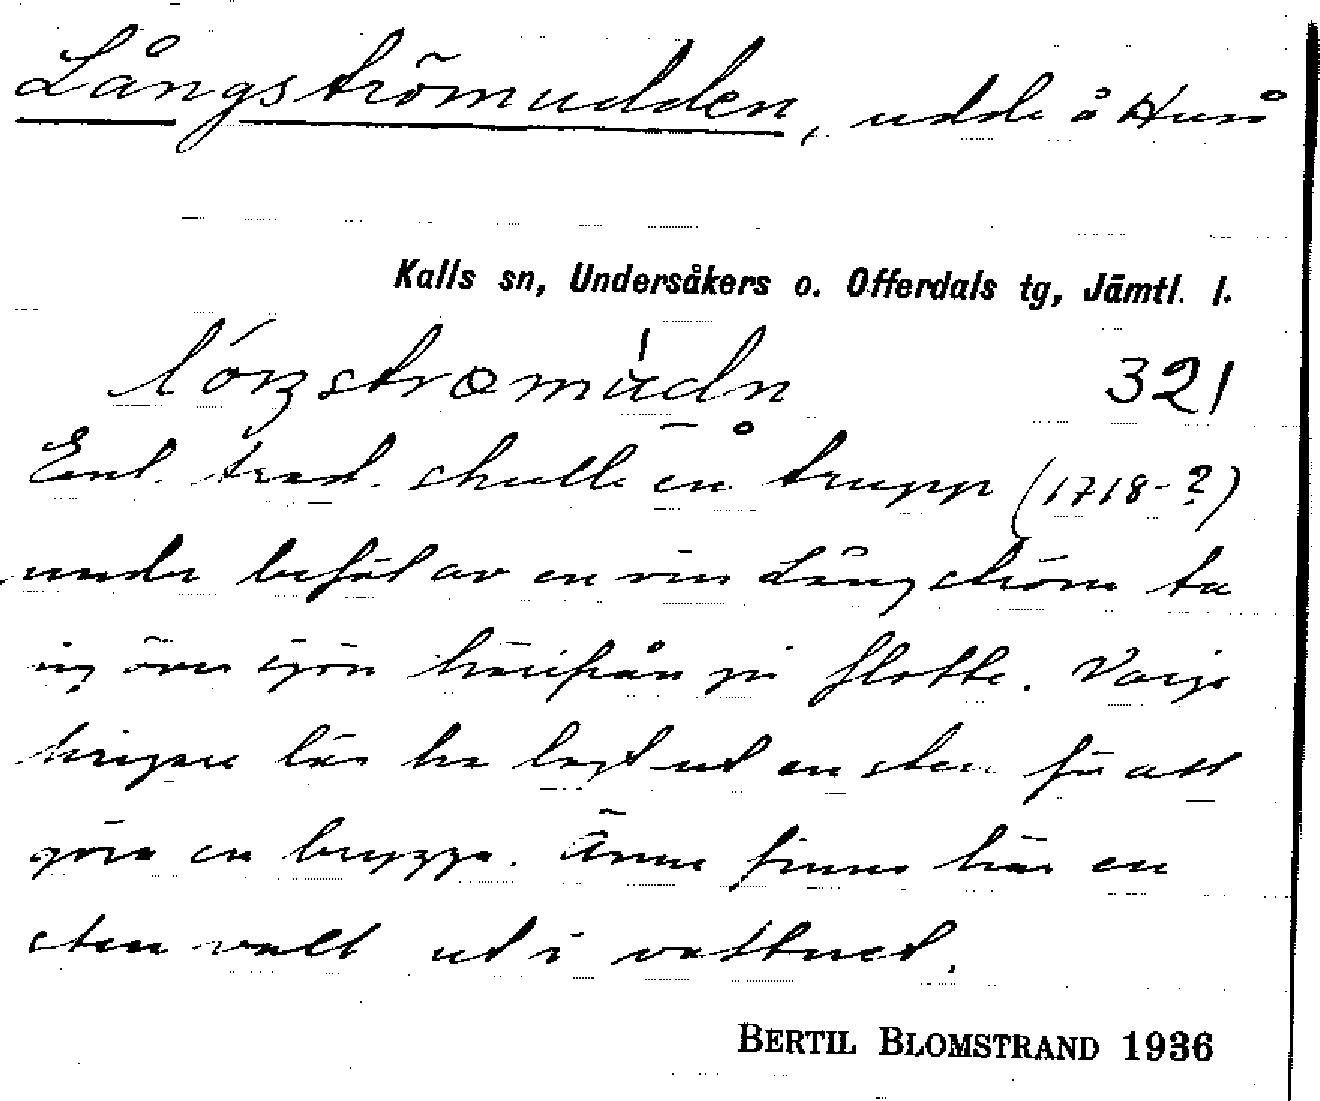 Långströmudden, udde å Huså
Kalls sn, Undersåkers o. Offerdals tg, Jämtl. l.
lóŋstrœmùdn 321
Enl. trad. skulle en trupp (1718-?)
under befäl av en viss Långström ta
sig över sjön härifrån på flotte. Varje
krigare lär ha lagt ut en sten för att
göra en brygga. Ännu finns här en
sten vall ut i vattnet.
BERTIL BLOMSTRAND 1936